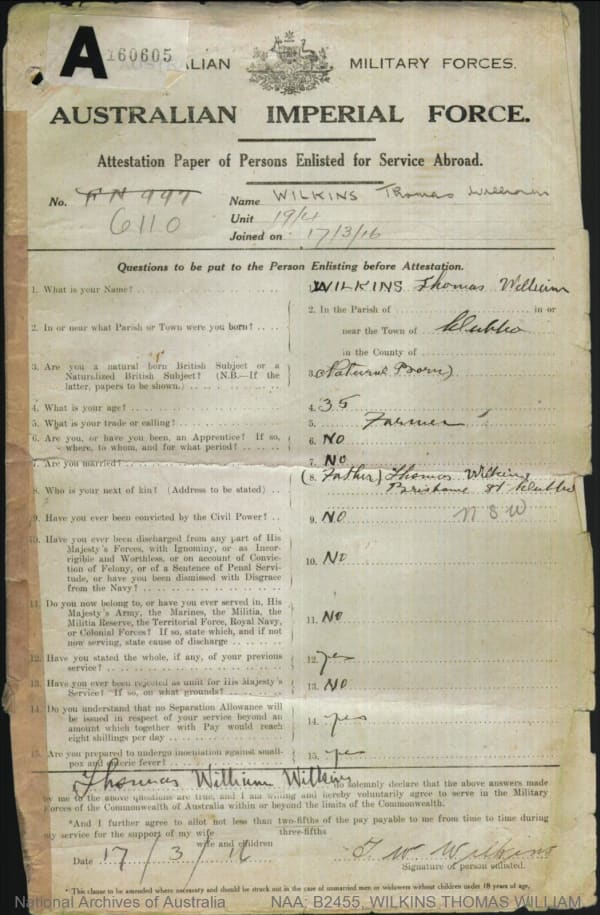 A 160605
ALIAN MILITARY FORCES.
AUSTRALIAN IMPERIAL FORCE.
Attestation Paper of Persons Enlisted for Service Abroad.
No. 6110 Name WILKINS Thomas William
Unit 19/4
Joined on 17/3/16
Questions to be put to the Person Enlisting before Attestation.
1. What is your Name? WILKINS Thomas William
2. In or near what Parish or Town were you born? 2. In the Parish of in or
near the Town of
in the County of
3. Are you a natural born British Subject or a
Naturalized British Subject? (N.B.—If the
latter, papers to be shown.) 3. (Natural Born)
4. What is your age? 4. 35
5. What is your trade or calling? 5. Farmer
6. Are you, or have you been, an Apprentice? If so,
where, to whom, and for what period? 6. NO
7. Are you married? 7. NO
8. Who is your next of kin? (Address to be stated) (8. Father) Thomas Wilkins
Brisbane St
NSW
9. Have you ever been convicted by the Civil Power? 9. NO
10. Have you ever been discharged from any part of His
Majesty's Forces, with Ignominy, or as Incor-
rigible and Worthless, or on account of Convic-
tion of Felony, or of a Sentence of Penal Servi-
tude, or have you been dismissed with Disgrace
from the Navy? 10. NO
11. Do you now belong to, or have you ever served in, His
Majesty's Army, the Marines, the Militia, the
Militia Reserve, the Territorial Force, Royal Navy,
or Colonial Forces? If so, state which, and if not
now serving, state cause of discharge 11. NO
12. Have you stated the whole, if any, of your previous
service? 12. yes
13. Have you ever been rejected as unfit for His Majesty's
Service? If so, on what grounds? 13. NO
14. Do you understand that no Separation Allowance will
be issued in respect of your service beyond an
amount which together with Pay would reach
eight shillings per day 14. yes
15. Are you prepared to undergo inoculation against small-
pox and enteric fever? 15. yes
I, Thomas William Wilkins do solemnly declare that the above answers made
by me to the above questions are true, and I am willing and hereby voluntarily agree to serve in the Military
Forces of the Commonwealth of Australia within or beyond the limits of the Commonwealth.
*And I further agree to allot not less than two-fifths of the pay payable to me from time to time during
three-fifths
my service for the support of my wife
wife and children
Date 17/3/16 T. W. Wilkins
Signature of person enlisted.
* This clause to be amended where necessary and should be struck out in the case of unmarried men or widowers without children under 18 years of age.
National Archives of Australia NAA: B2455, WILKINS THOMAS WILLIAM